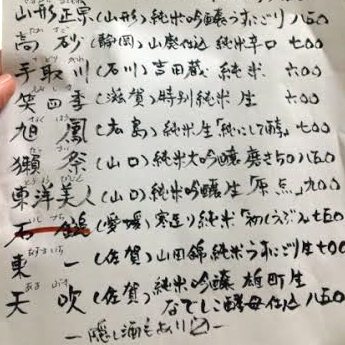 山形正宗(山形)純米吟醸うすにごり 八五〇
高砂(静岡)山廃仕込 純米辛口 七〇〇
手取川(石川)吉田蔵 純米 六〇〇
笑四季(滋賀)特別純米 生 六〇〇
旭鳳(広島)純米生「にして酔」七〇〇
獺祭(山口)純米大吟醸 磨き50 八五〇
東洋美人(山口)純米吟醸 生「原点」九〇〇
石鎚(愛媛)寒造り純米「初しぼり」七五〇
東一(佐賀)山田錦 純米うすにごり生 七〇〇
天吹(佐賀)純米吟醸 雄町生
なでしこ酵母仕込 八五〇
ー隠し酒もあり〼ー